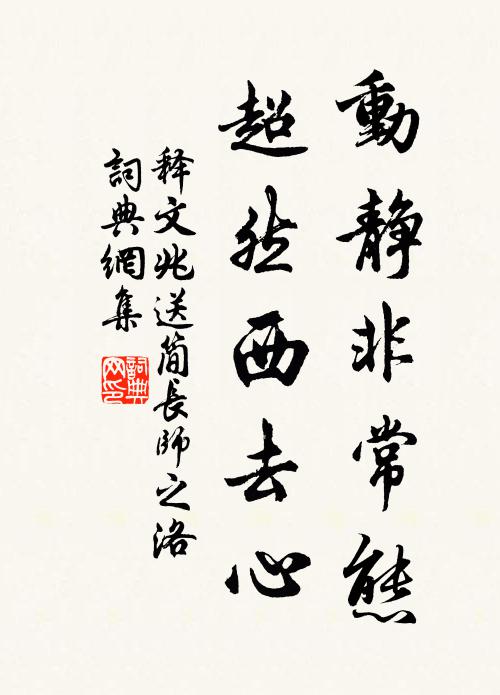 動靜非常態
超然西去心
释文兆送简長師之洛
詞典網集
詞典网印